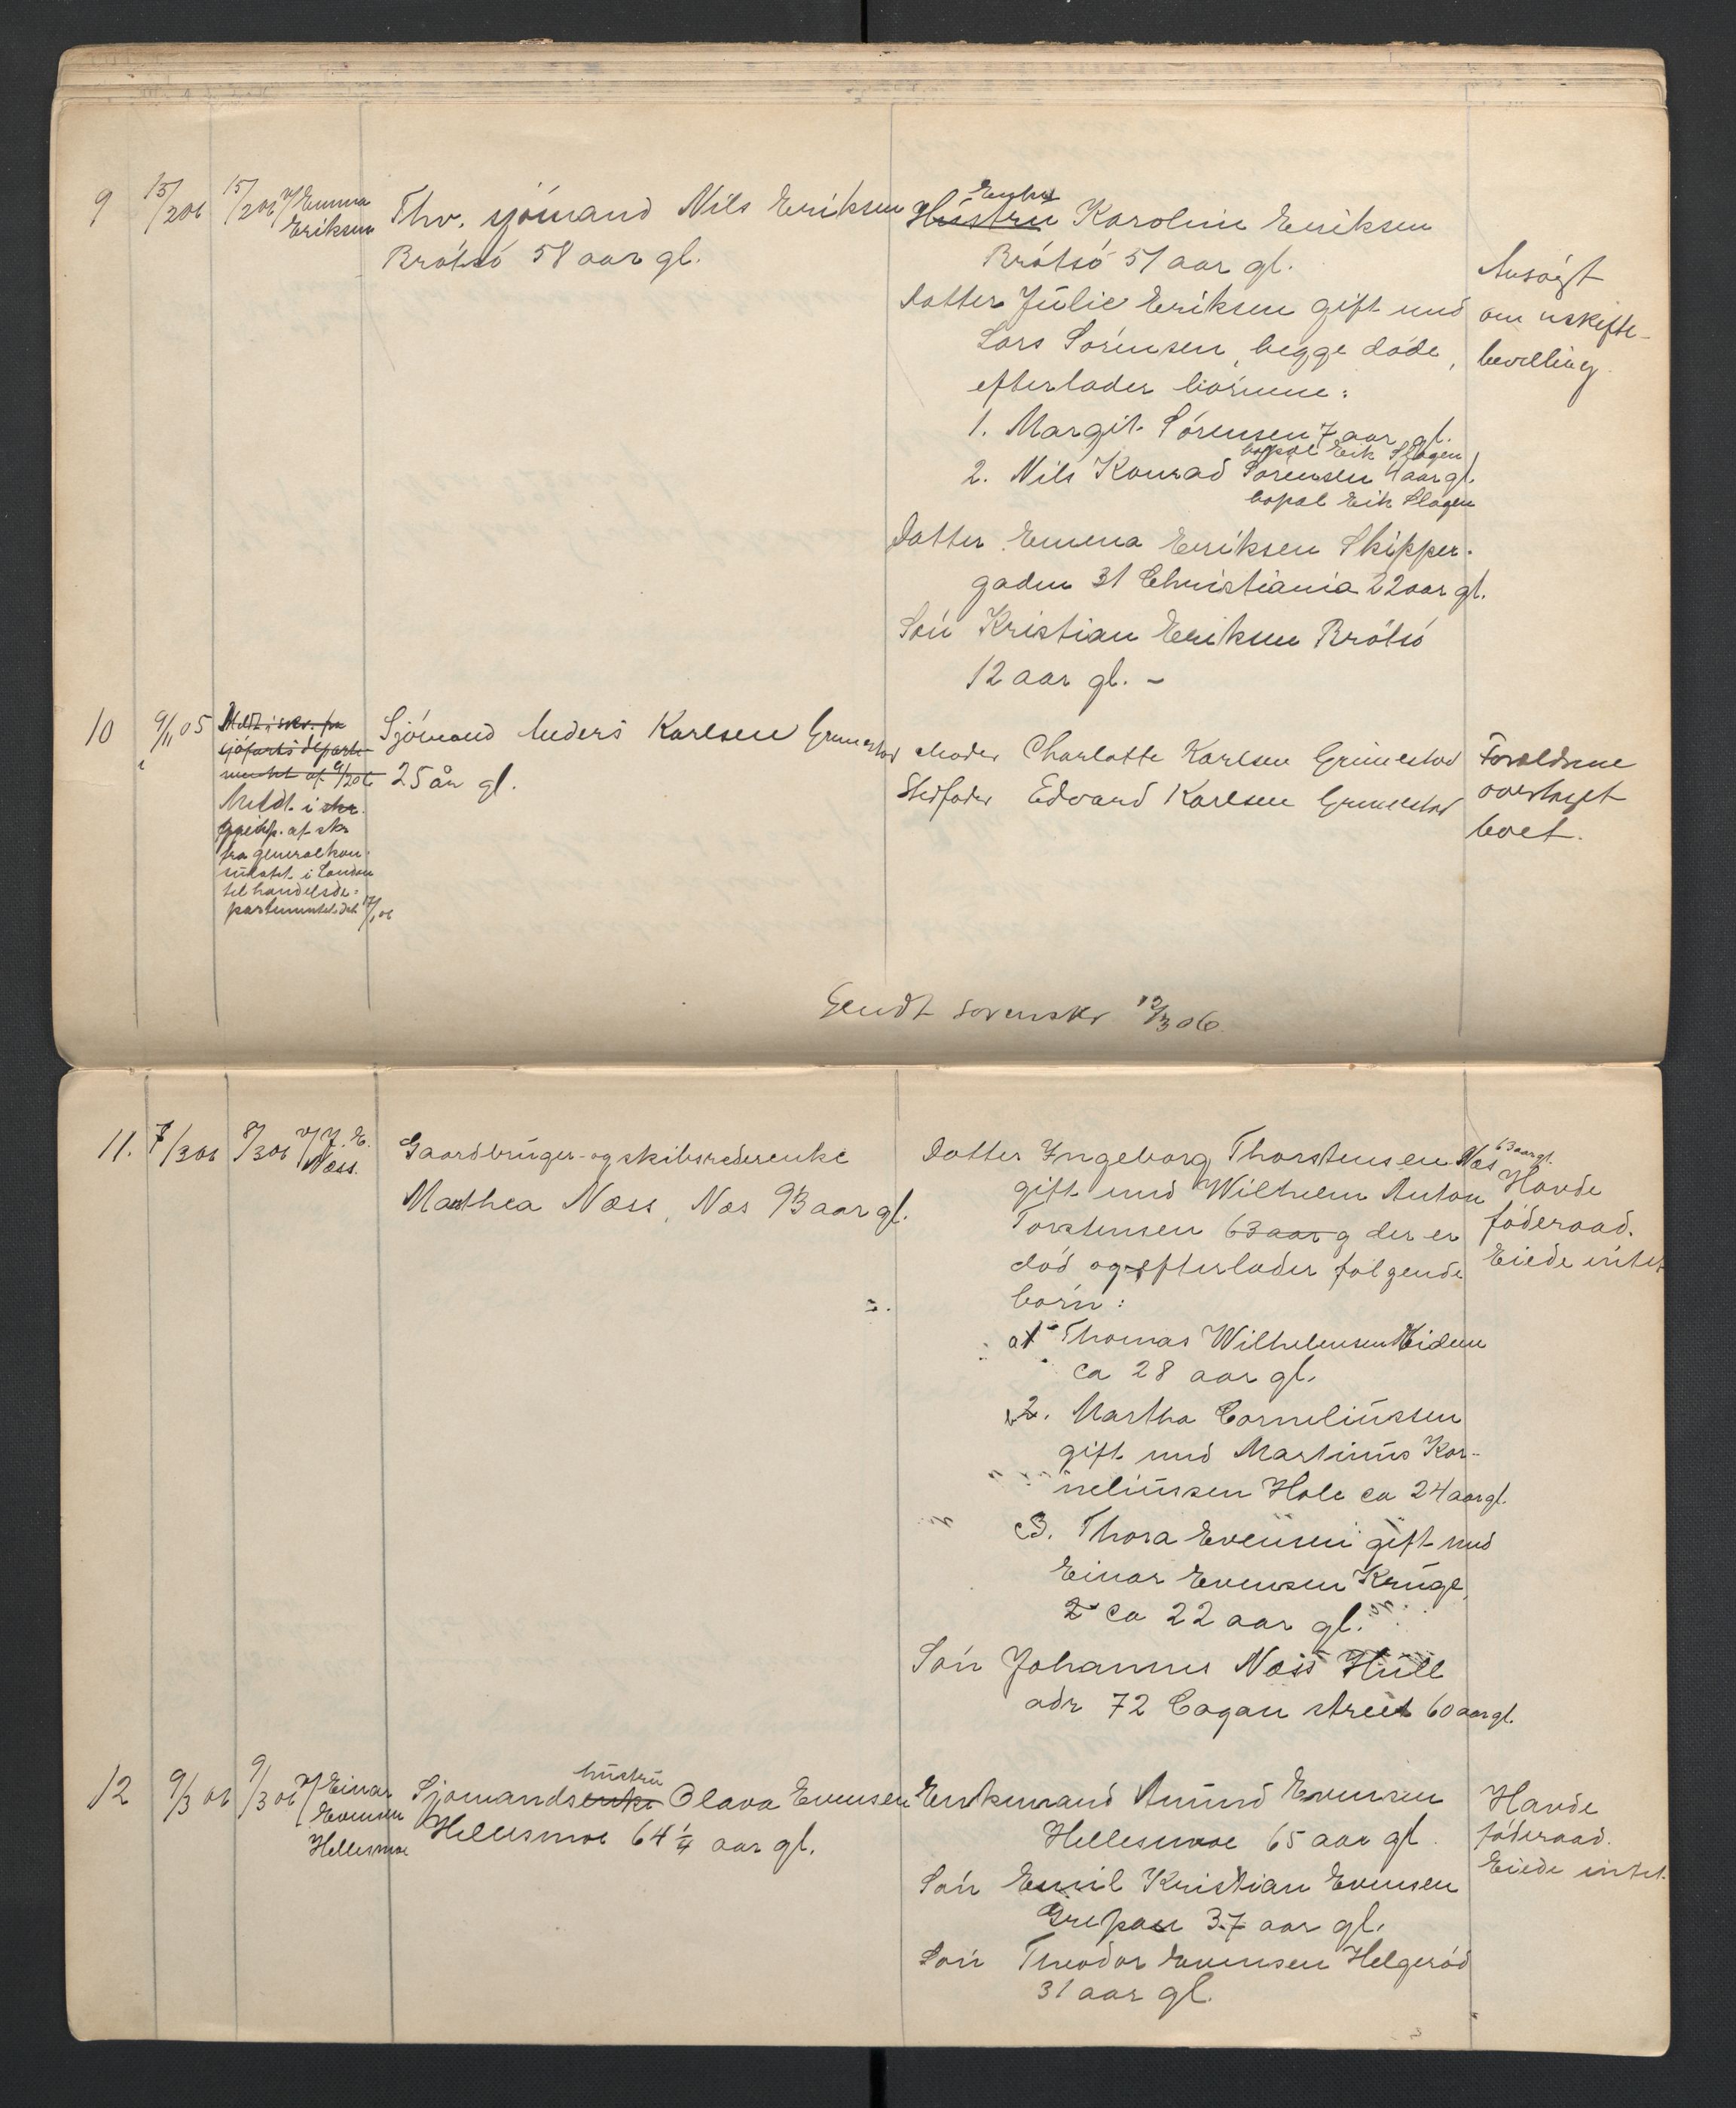 9 15/2 06 15/2 06 v/ Emma Eriksen
Thv. sjömand Nils Eriksen
Brötsö 58 aar gl.
Enke
Hustru Karoline Eriksen
Brötsö 51 aar gl.
Datter Julie Eriksen gift med
Lars Sörensen, begge döde,
efterlader börnene:
1. Margit Sörensen 7 aar gl.
bopæl Eik Slagen
2. Nils Konrad Sörensen 4 aar gl.
bopæl Eik Slagen
Datter Emma Eriksen Skipper-
gaden 31 Christiania 22 aar gl.
Sön Kristian Eriksen Brötsö
12 aar gl. -
Ansögt
om uskifte-
bevilling.
10 9/11 05
Meldt i skr. fra
sjöfartsdeparte-
mentet af 9/2 06
Meldt i skr.
gjenp. af skr
fra generalkon-
sulatet i London
til handelsde-
partementet, dat 17/1 06
Sjömand Anders Karlsen Grimestad
25 år gl.
Moder Charlotte Karlsen Grimestad
Stedfader Edvard Karlsen Grimestad
Forældrene
overtaget
boet.
Sendt sorenskr 12/3 06.
11. 7/3 06 8/3 06 v/ J. E. Næss.
Gaardbruger- og skibsrederenke
Mathea Næss, Næs 93 aar gl.
Datter Ingeborg Thorstensen Næs 63 aar gl.
gift med Wilhelm Anton
Torstensen 63 aar g der er
död og efterlader fölgende
börn:
a 1 Thomas Wilhelmsen Hidem
ca 28 aar gl.
b 2. Martha Corneliussen
gift med Martinus Kor-
neliussen Hole ca 24 aar gl.
c 3. Thora Evensen gift med
Einar Evensen Kruge,
2 ca 22 aar gl.
Sön Johannes Næss Hull
adr 72 Cogan street 60 aar gl.
Havde
föderaad.
Eiede intet
12 9/3 06 9/3 06 v/ Einar
Evensen
Hellesmoe
hustru
Sjömandsenke Olava Evensen
Hellesmoe 64 1/4 aar gl.
Enkemand Amund Evensen
Hellesmoe 65 aar gl.
Sön Emil Kristian Evensen
Grepan 37 aar gl.
Sön Theodor Evensen Helgeröd
31 aar gl.
Havde
föderaad.
Eiede intet.